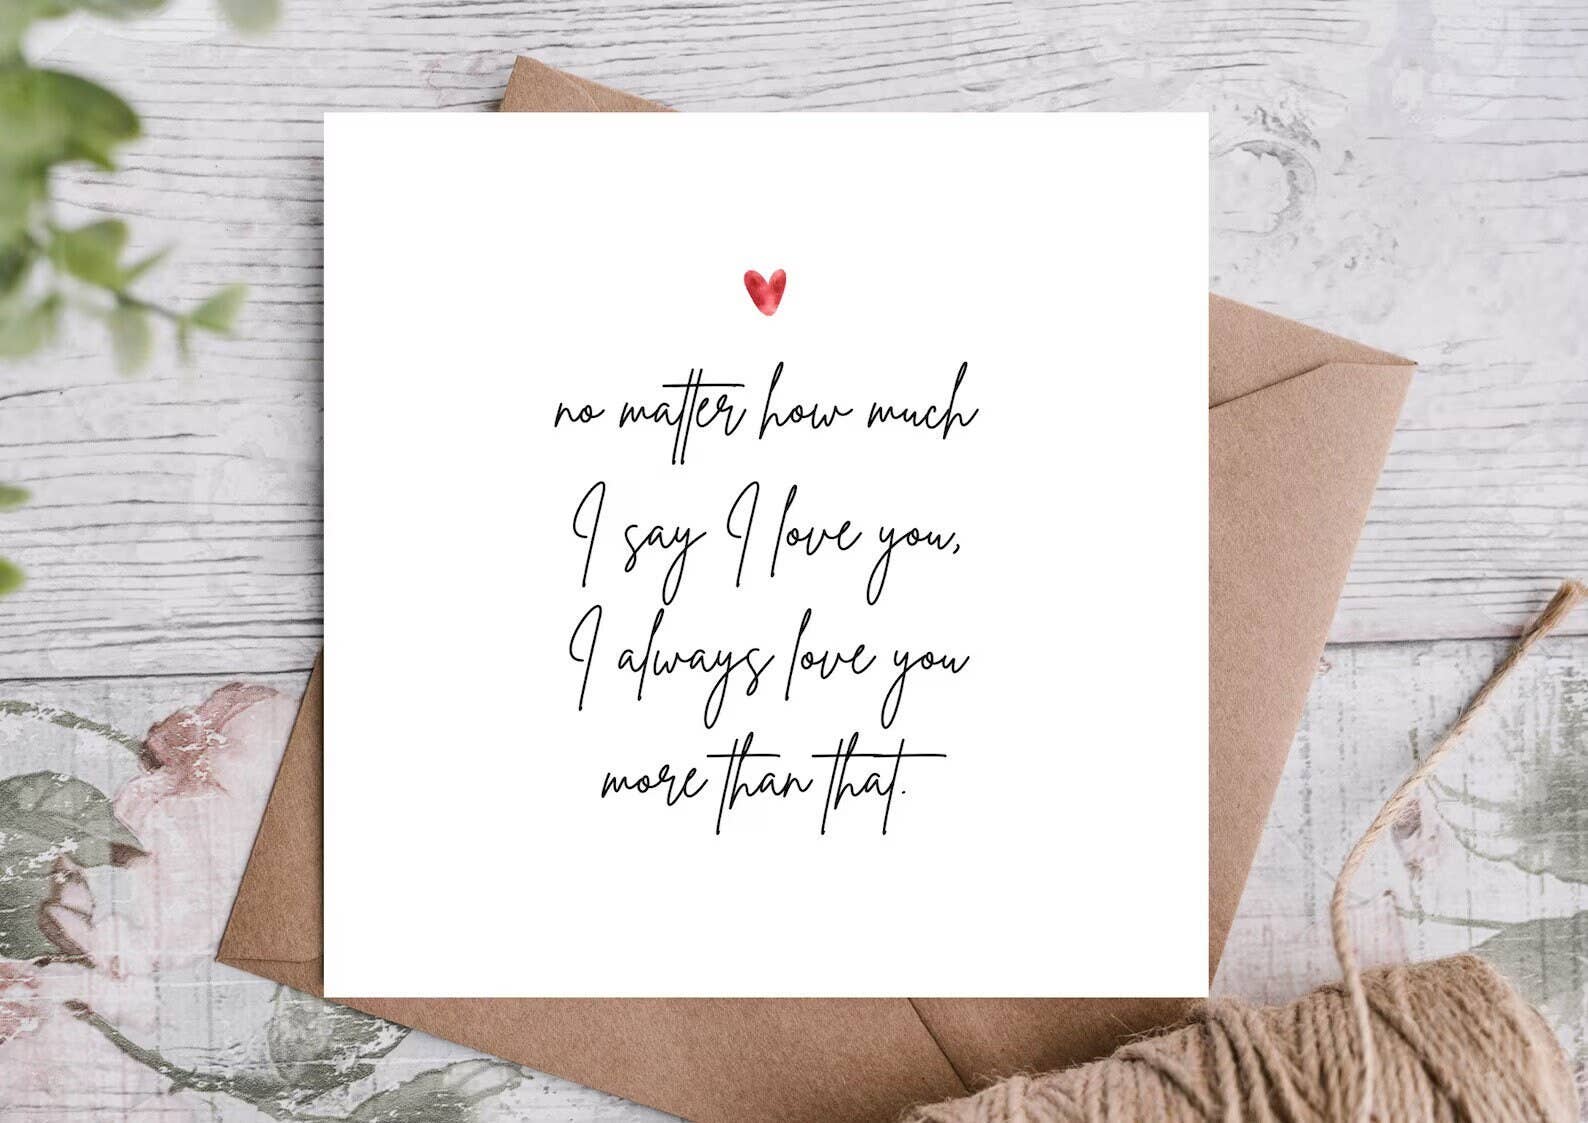 no matter how much
I say I love you,
I always love you
more than that.